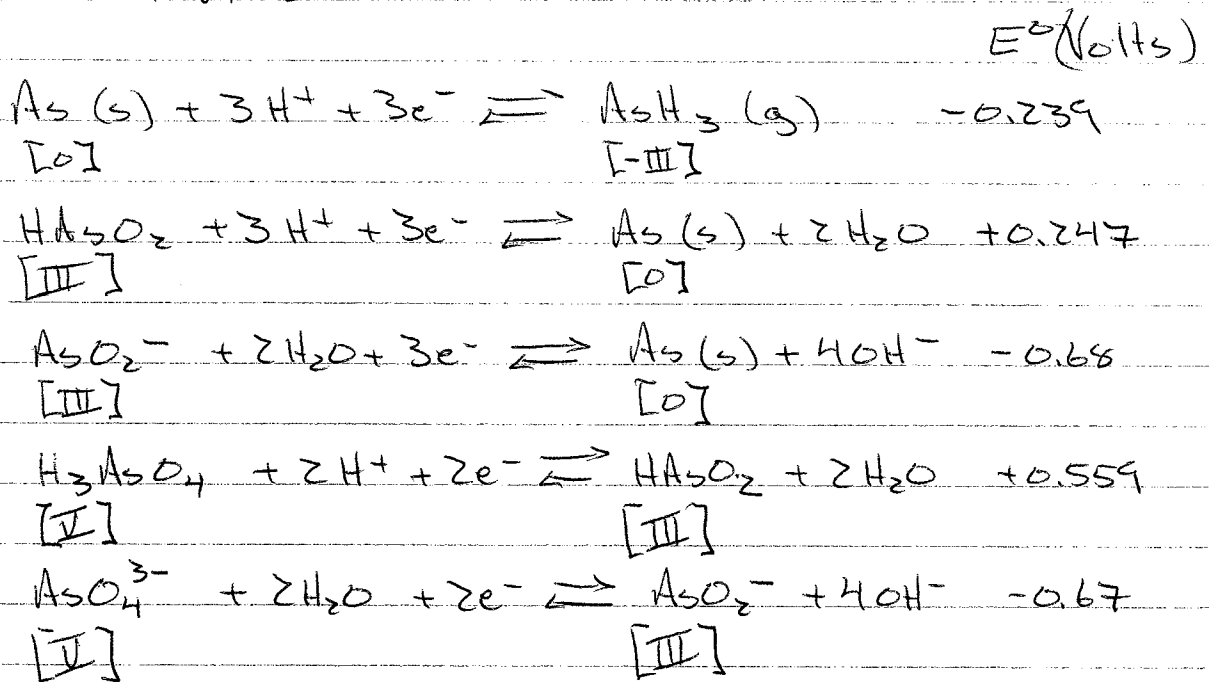 E⁰ (Volts)
As (s) + 3 H⁺ + 3e⁻ ⇌ AsH₃ (g) -0.239
[0] [-III]
HAsO₂ + 3 H⁺ + 3e⁻ ⇌ As (s) + 2 H₂O +0.247
[III] [0]
AsO₂⁻ + 2H₂O + 3e⁻ ⇌ As (s) + 4OH⁻ -0.68
[III] [0]
H₃AsO₄ + 2 H⁺ + 2e⁻ ⇌ HAsO₂ + 2 H₂O +0.559
[V] [III]
AsO₄³⁻ + 2H₂O + 2e⁻ ⇌ AsO₂⁻ + 4OH⁻ -0.67
[V] [III]